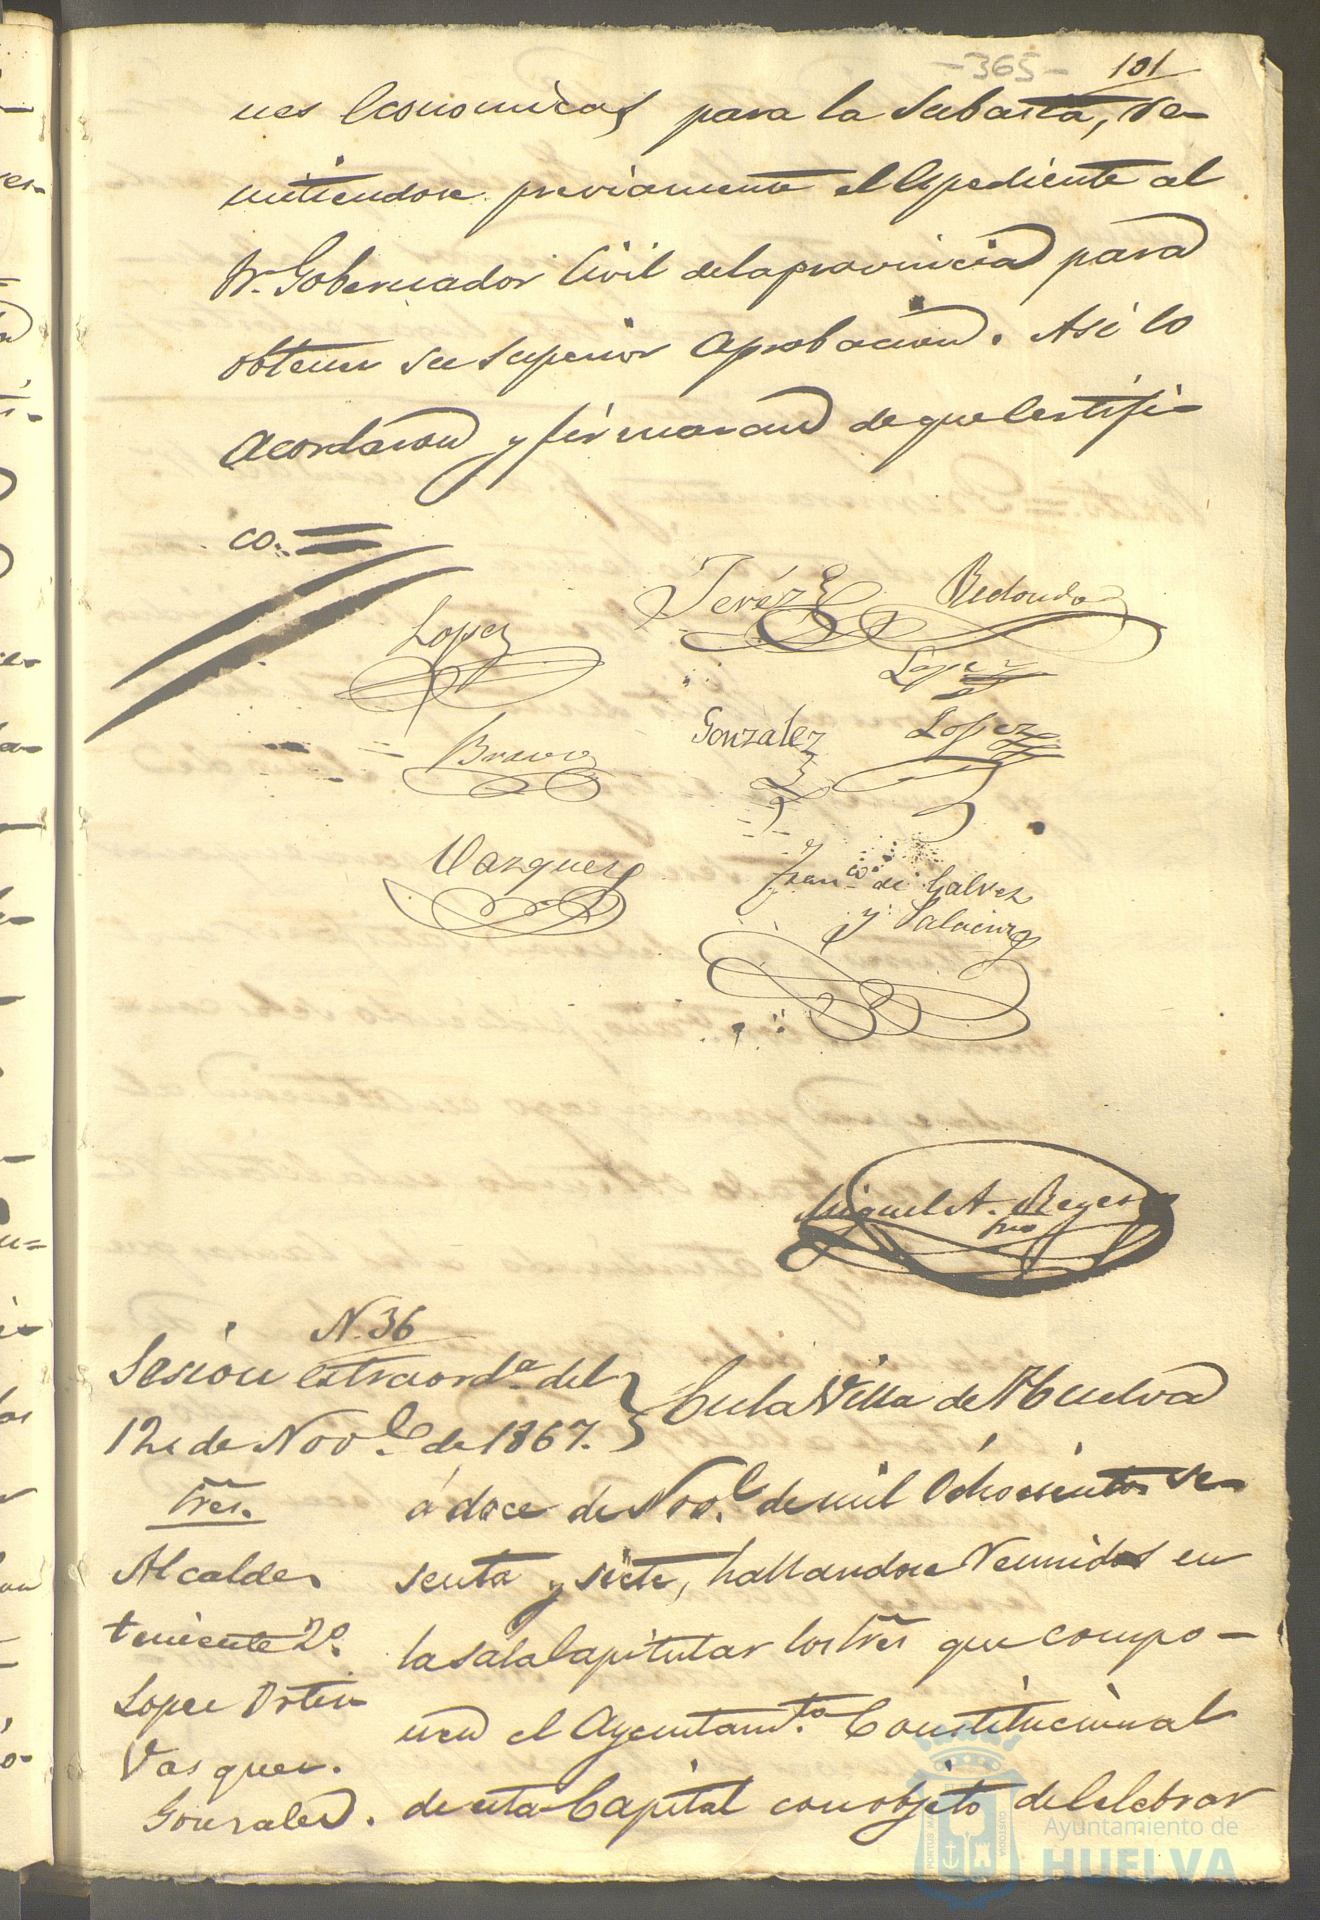 -365-
101
nes Economicas para la Subasta, re-
mitiendose previamente el Expediente al
Sr. Gobernador Civil de la provincia para
obtener su superior aprobacion. Asi lo
acordaron y firmaran de que Certifi-
co.=
Jeréz
Redondo
Lopez
Lopez
Gonzalez
Lopez
Bravo
Vazquez
Fran.co de Galvez
y Palacios
Miguel A. Reyes
srio
N. 36
Sesion extraord.a del
12 de Nov.e de 1867.
Sres.
Alcalde
teniente 2o.
Lopez Ortiz
Vasquez.
Gonzalez.
En la Villa de Huelva
á doce de Nov.e de mil Ochocientos se-
senta y siete, hallandose Reunidos en
la sala Capitular los Sres que compo-
nen el Ayuntam.to Constitucional
de esta Capital con objeto de Celebrar
PORTUS MARIS
CUSTODIA
Ayuntamiento de
HUELVA